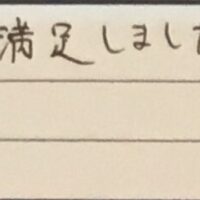 満足しまし